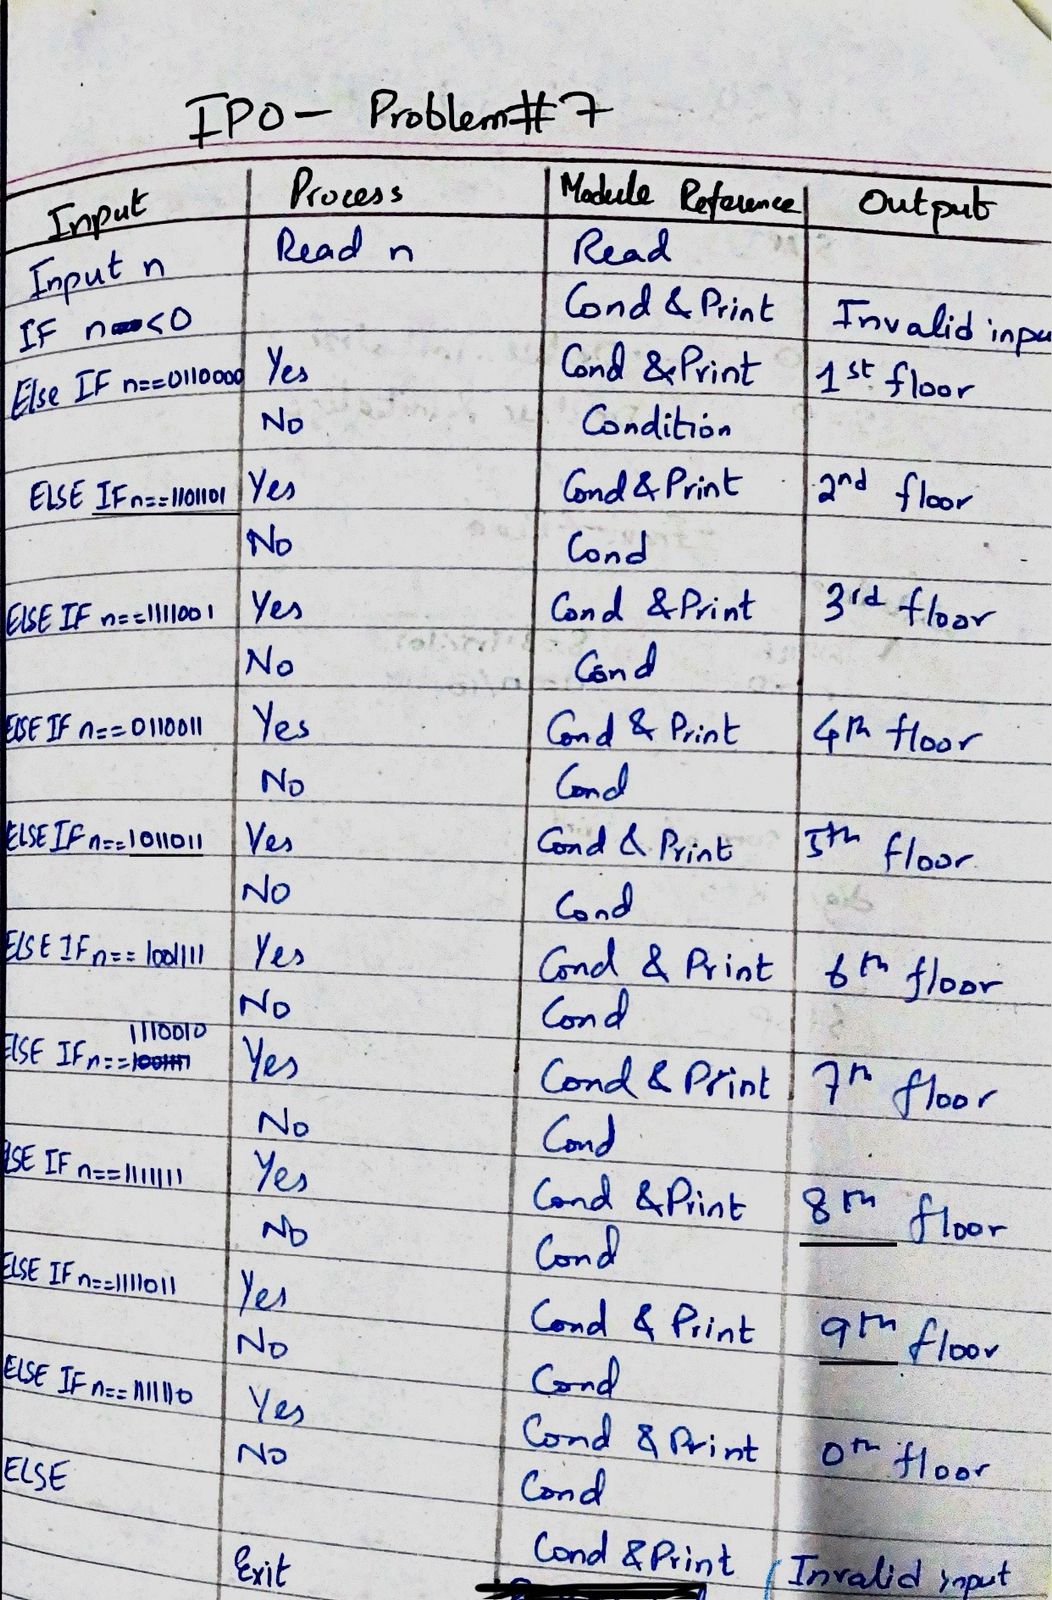 IPO - Problem#7
Input Process Module Reference Output
Input n Read n Read
IF n<0 Cond & Print Invalid inpu
Else IF n==0110000 Yes Cond & Print 1st floor
No Condition
ELSE IF n==1101101 Yes Cond & Print 2nd floor
No Cond
ELSE IF n==1111001 Yes Cond & Print 3rd floor
No Cond
ELSE IF n==0110011 Yes Cond & Print 4th floor
No Cond
ELSE IF n==1011011 Yes Cond & Print 5th floor
No Cond
ELSE IF n==1001111 Yes Cond & Print 6th floor
No Cond
1110010
ELSE IF n== Yes Cond & Print 7th floor
No Cond
LSE IF n==1111111 Yes Cond & Print 8th floor
No Cond
ELSE IF n==1111011 Yes Cond & Print 9th floor
No Cond
ELSE IF n==111110 Yes Cond & Print 0th floor
No Cond
ELSE Cond & Print Invalid input
Exit